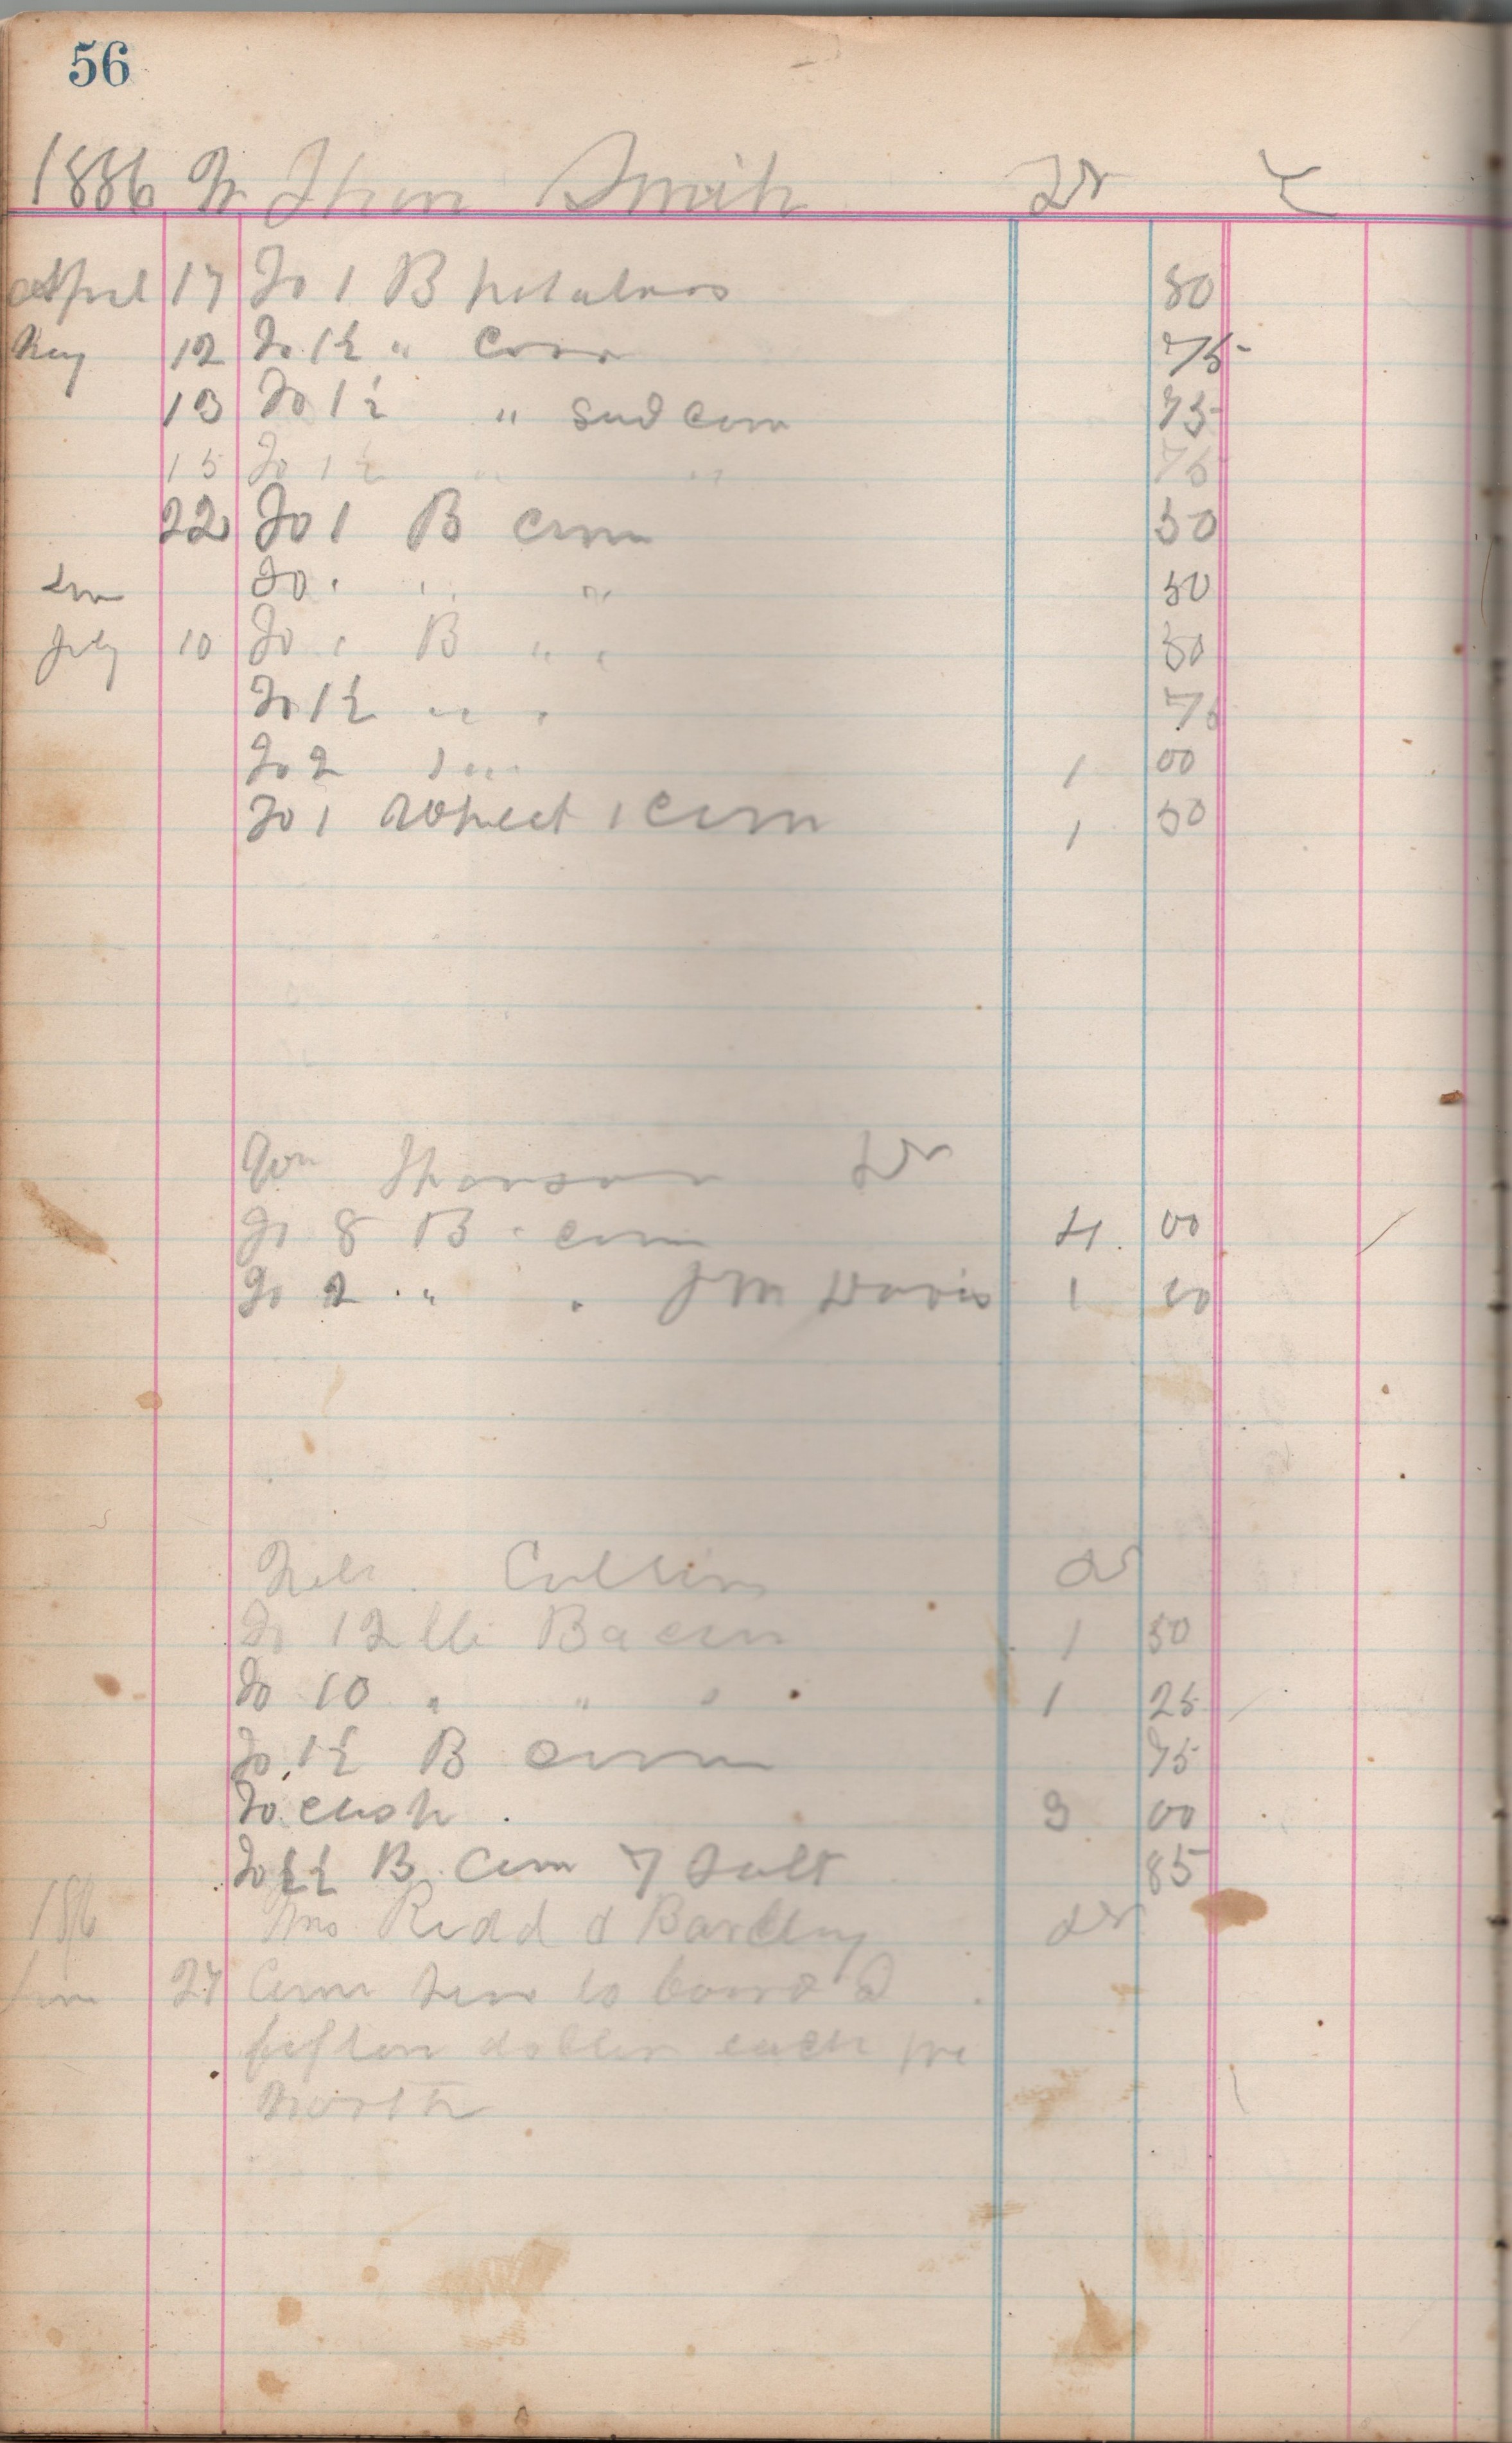 56
1886 Smith Dr
April 17 To 1 B potatoes 50
May 12 To 1½ " Corn 75
13 To 1½ " Seed Corn 75
15 To 1½ " " 75
22 To 1 B Corn 50
To " " " 50
July 10 To 1 B " " 50
To 1½ " " 75
To 2 " " 1 00
To 1 Wheat 1 Corn 1 50
Dr
To 8 B corn 4 00
To 2 " " J M Davis 1 00
Collins Dr
To 12 lb Bacon 1 50
To 10 " " " 1 25
To 1½ B corn 75
To cash 3 00
To B Corn 7 Salt 85
1886 Redd & Barclay Dr
27 Came to board
fiften doller each
month